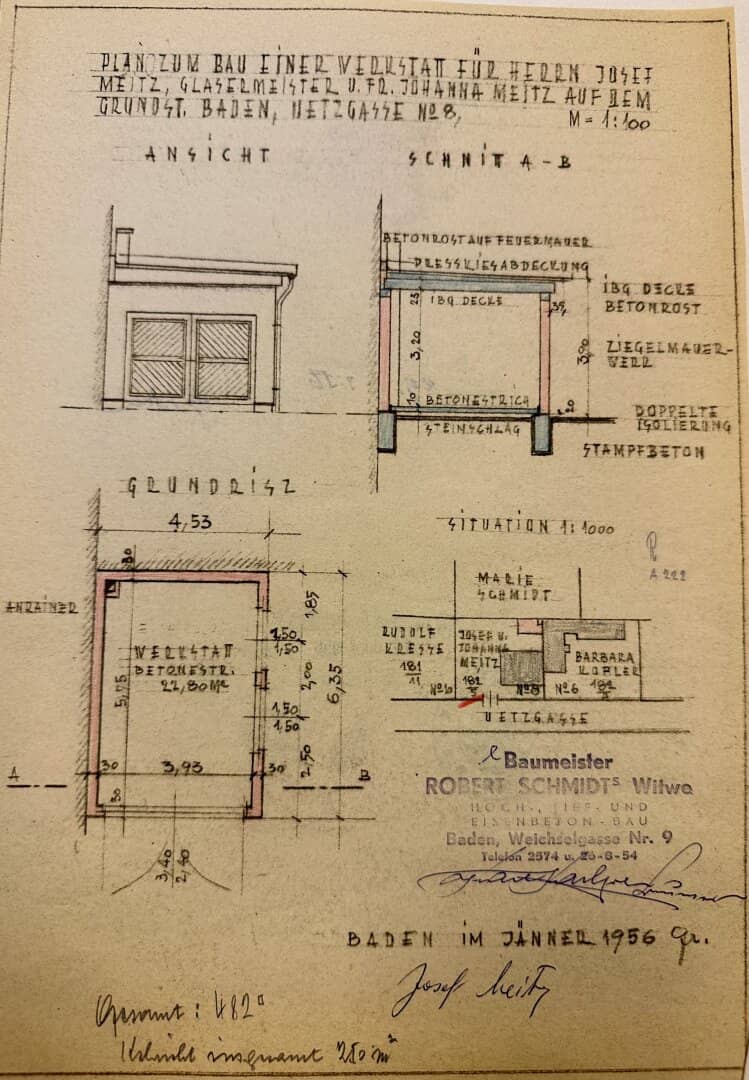 PLAN ZUM BAU EINER WERKSTATT FÜR HERRN JOSEF
MEITZ, GLASERMEISTER U. FR. JOHANNA MEITZ AUF DEM
GRUNDST. BADEN, UETZGASSE No 8,
M = 1:100
ANSICHT
SCHNITT A-B
BETONROST AUF FEUERMAUER
PRESSKIESABDECKUNG
IBG DECKE
25
3,20
10
35
3,90
20
BETONESTRICH
STEINSCHLAG
IBG DECKE
BETONROST
ZIEGELMAUER-
WERK
DOPPELTE
ISOLIERUNG
STAMPFBETON
GRUNDRISZ
4,53
30
ANRAINER
WERKSTATT
BETONESTR.
22,80 M²
5,75
1,50
1,50
1,50
1,50
1,85
2,00
2,50
6,35
A
30
3,93
30
B
30
3,40
2,40
SITUATION 1:1000
A 222
MARIE
SCHMIDT
RUDOLF
KRESSE
181/11
No 10
JOSEF U.
JOHANNA
MEITZ
No 8
No 6
BARBARA
KOBLER
UETZGASSE
Baumeister
ROBERT SCHMIDTs Witwe
HOCH-, TIEF- UND
EISENBETON-BAU
Baden, Weichselgasse Nr. 9
Telefon 2574 u. 26-6-54
BADEN IM JÄNNER 1956 Gr.
Josef Meitz
Gesamt : 482
insgesamt 280 m²